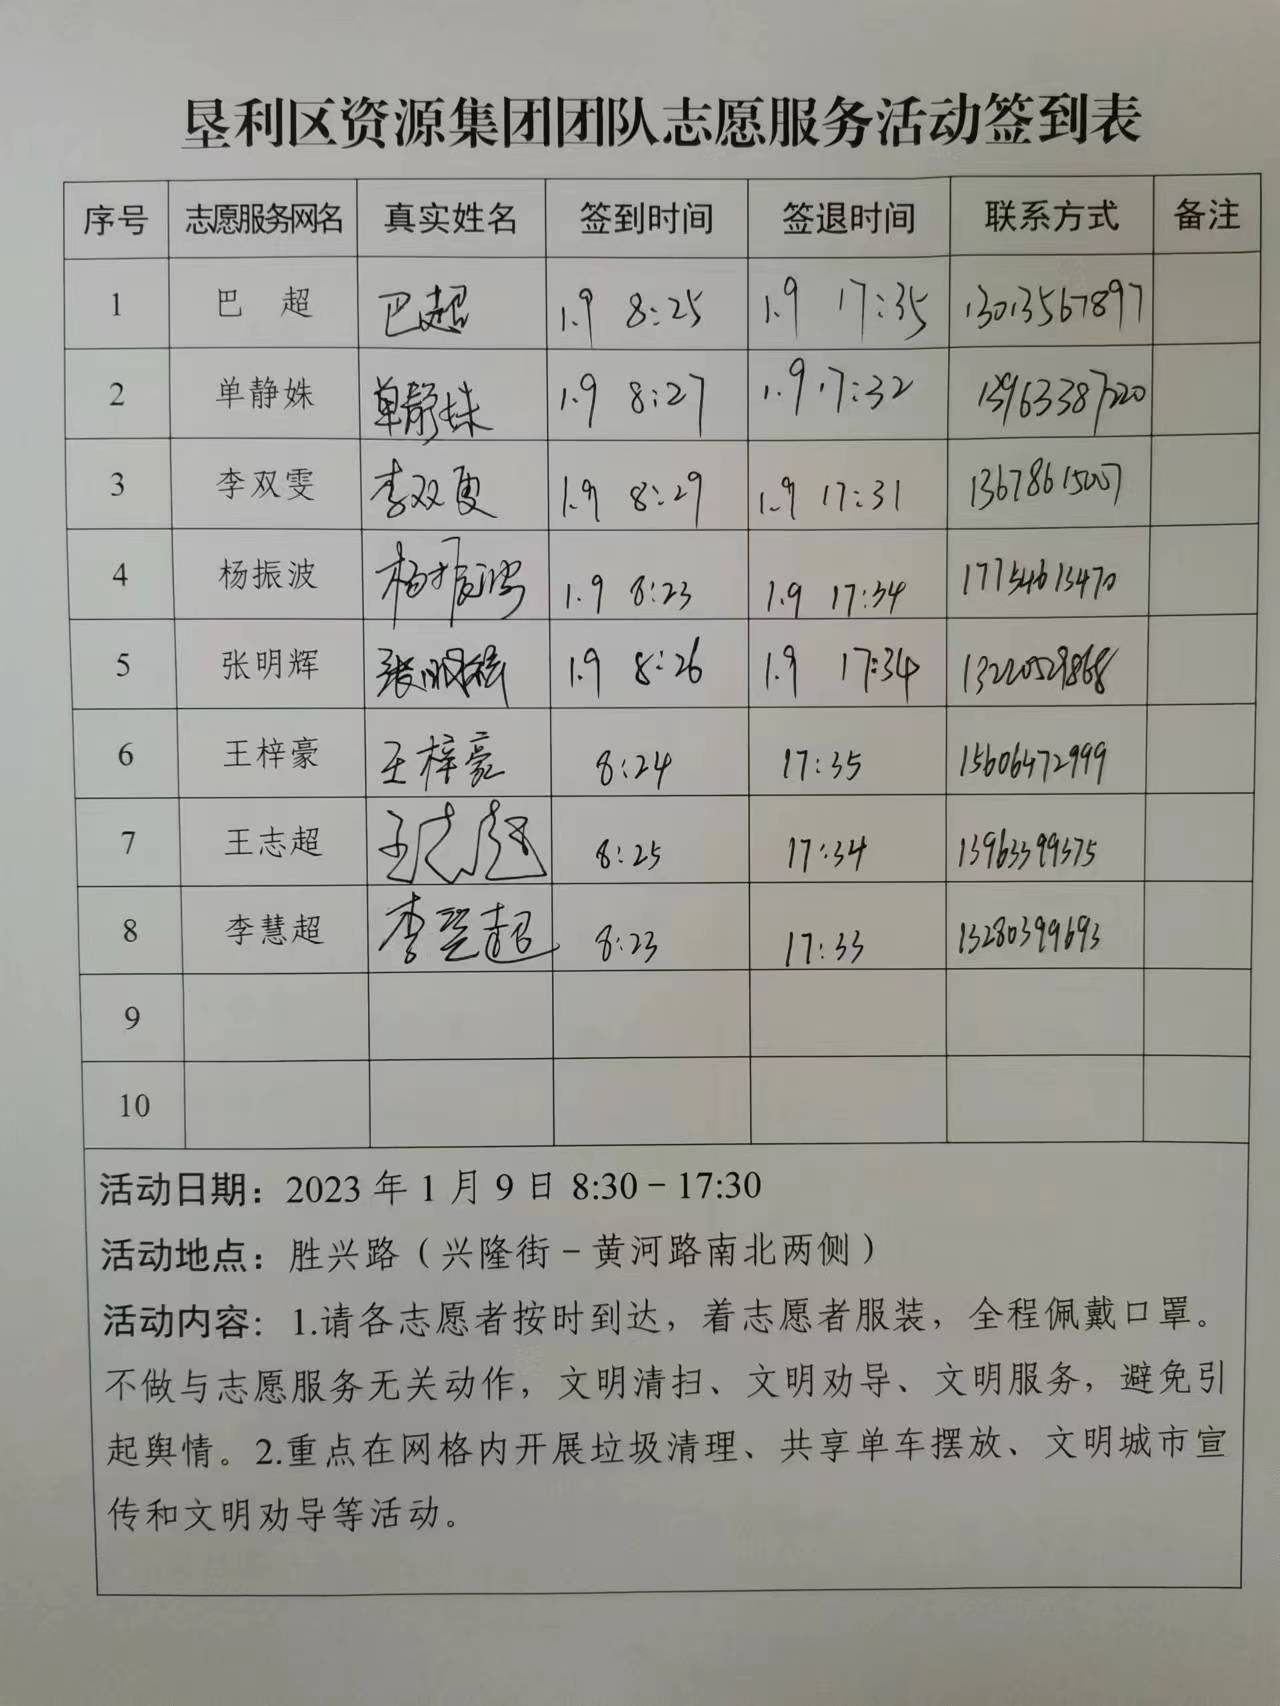 垦利区资源集团团队志愿服务活动签到表
序号 志愿服务网名 真实姓名 签到时间 签退时间 联系方式 备注
1 巴 超 巴超 1.9 8:25 1.9 17:35 13013567897
2 单静姝 单静姝 1.9 8:27 1.9 17:32 13963387220
3 李双雯 李双雯 1.9 8:29 1.9 17:31 13678615007
4 杨振波 杨振波 1.9 8:23 1.9 17:34 17754613470
5 张明辉 张明辉 1.9 8:26 1.9 17:34 13220529868
6 王梓豪 王梓豪 8:24 17:35 15606472999
7 王志超 王志超 8:25 17:34 13963399375
8 李慧超 李慧超 8:23 17:33 13280399693
9
10
活动日期：2023 年 1 月 9 日 8:30－17:30
活动地点：胜兴路（兴隆街－黄河路南北两侧）
活动内容：1.请各志愿者按时到达，着志愿者服装，全程佩戴口罩。
不做与志愿服务无关动作，文明清扫、文明劝导、文明服务，避免引
起舆情。2.重点在网格内开展垃圾清理、共享单车摆放、文明城市宣
传和文明劝导等活动。